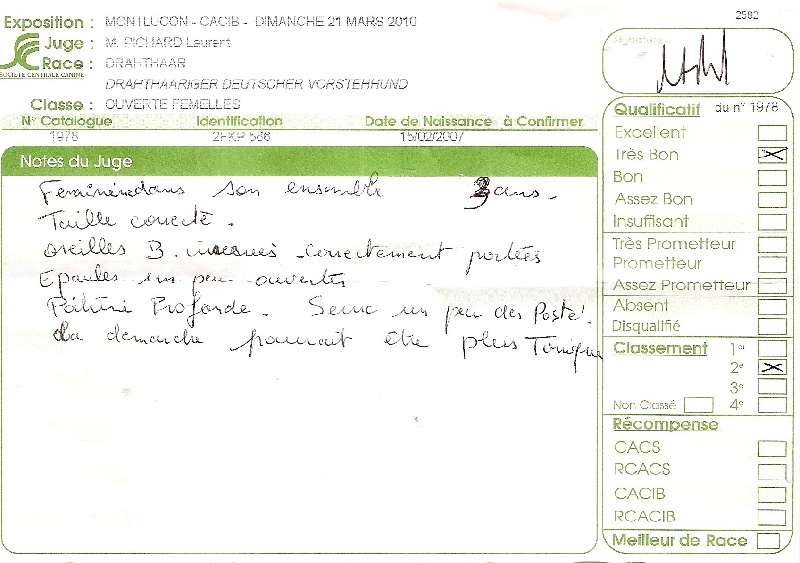 2582
Exposition : MONTLUCON - CACIB - DIMANCHE 21 MARS 2010
Juge : M. PICHARD Laurent
Race : DRAHTHAAR
SOCIETE CENTRALE CANINE
DRAHTHAARIGER DEUTSCHER VORSTEHHUND
Classe : OUVERTE FEMELLES
N° Catalogue Identification Date de Naissance à Confirmer
1978 2FKP 566 15/02/2007
Notes du Juge
dans son ensemble 3 ans.
Taille correcte.
oreilles B. correctement portées
Epaules un peu ouvertes
Poitrine Profonde. un peu des
La demarche pourrait être plus Tonique
Signature
Qualificatif du n° 1978
Excellent
Très Bon
Bon
Assez Bon
Insuffisant
Très Prometteur
Prometteur
Assez Prometteur
Absent
Disqualifié
Classement 1er
2e
3e
Non Classé 4e
Récompense
CACS
RCACS
CACIB
RCACIB
Meilleur de Race